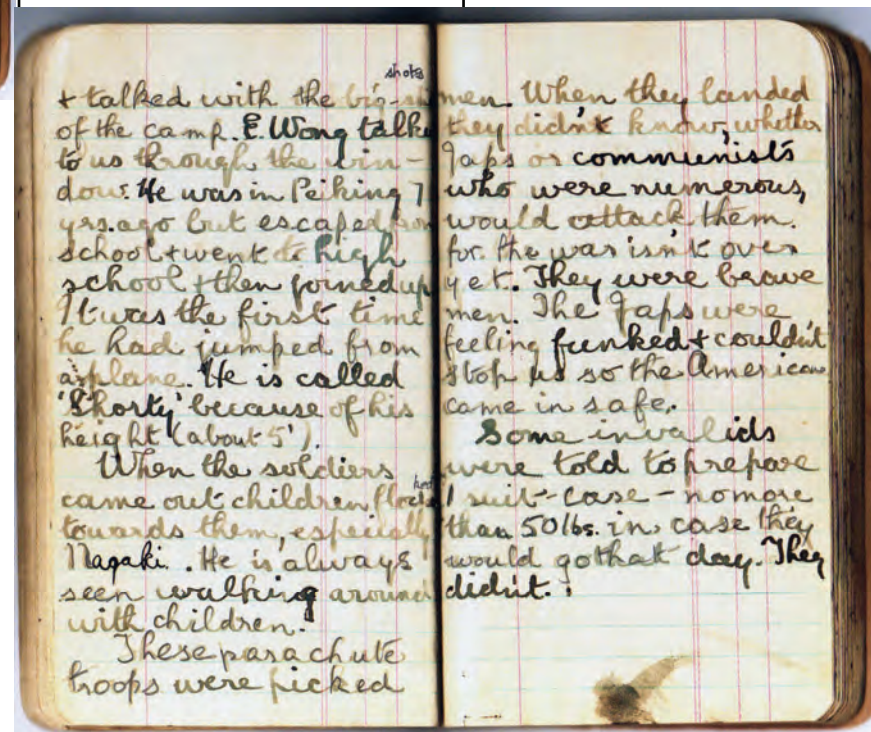 & talked with the big-shots
of the camp. E. Wong talk
to us through the win-
dow. He was in Peiking 7
yrs. ago but escaped from
school & went to high
school & then joined up
It was the first time
he had jumped from
a plane. He is called
'Shorty' because of his
height (about 5').
When the soldiers
came out children flocked
towards them, especially
Nagaki. He is always
seen walking around
with children.
These parachute
troops were picked
men. When they landed
they didn't know, whether
Japs or communists
who were numerous,
would attack them.
for the war isn't over
yet. They were brave
men. The Japs were
feeling funked & couldn't
stop us so the American
came in safe.
Some invalids
were told to prepare
1 suit-case - no more
than 50 lbs. in case they
would go that day. They
didn't.